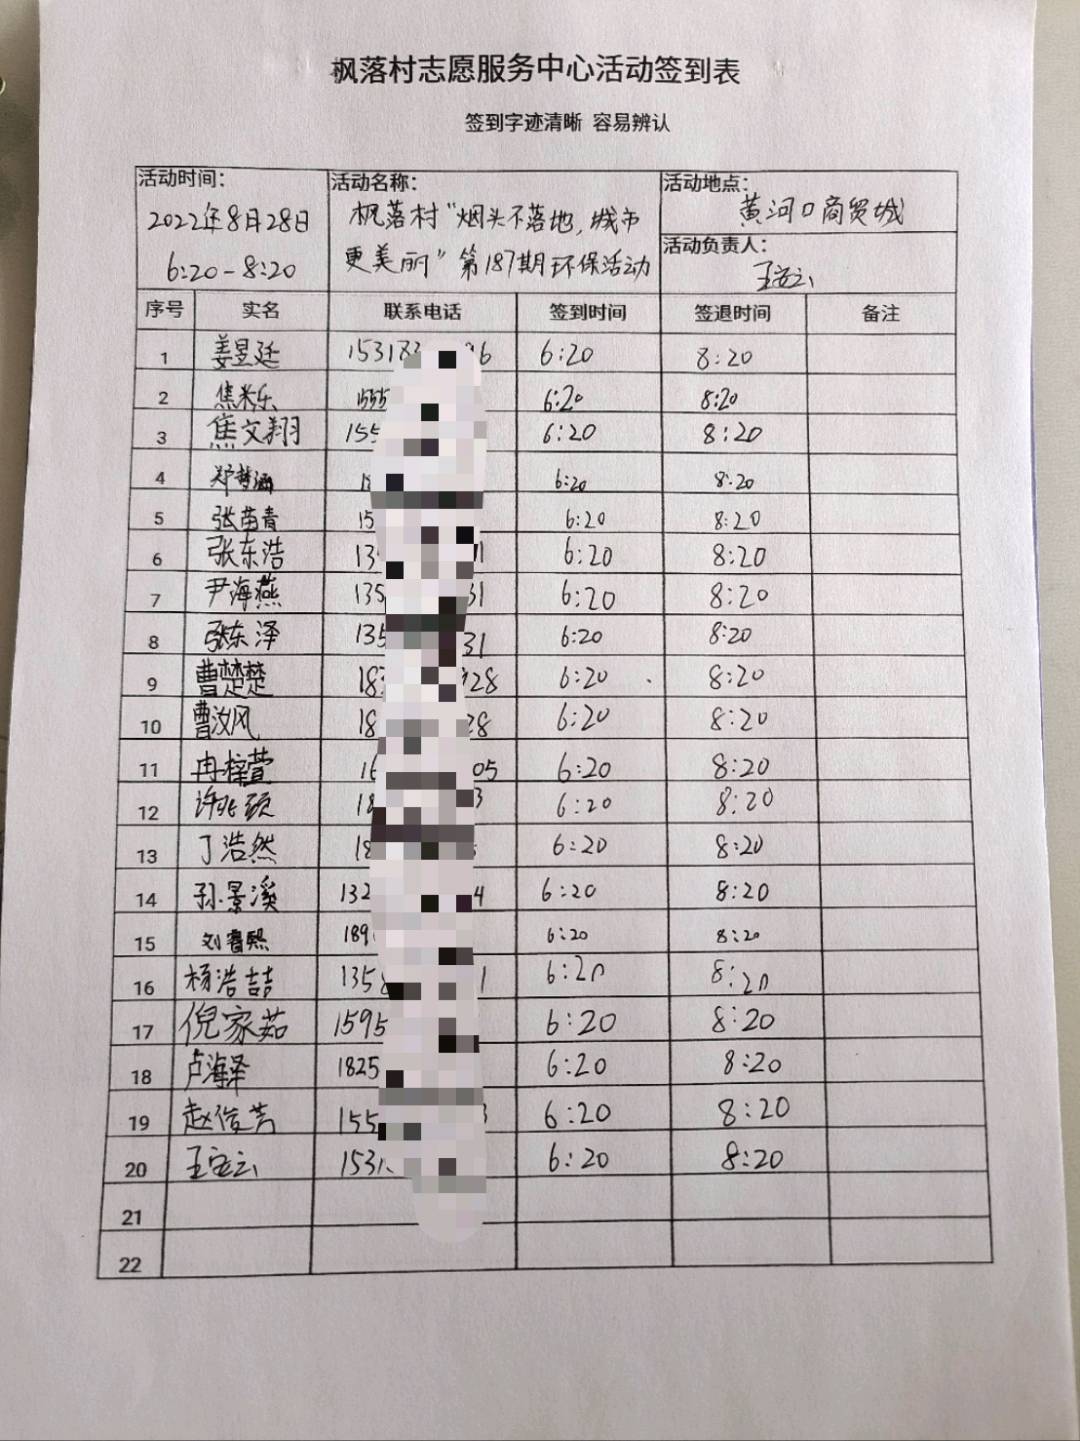 枫落村志愿服务中心活动签到表
签到字迹清晰 容易辨认
活动时间: 活动名称: 活动地点:
2022年8月28日 枫落村"烟头不落地,城市 黄河口商贸城
6:20-8:20 更美丽"第187期环保活动 活动负责人:
王宝云
序号 实名 联系电话 签到时间 签退时间 备注
1 姜昱廷 15318 6 6:20 8:20
2 焦米乐 1555 6:20 8:20
3 焦文翔 155 6:20 8:20
4 郑梦涵 18 6:20 8:20
5 张苗青 15 6:20 8:20
6 张东浩 13 1 6:20 8:20
7 尹海燕 135 31 6:20 8:20
8 张东泽 135 31 6:20 8:20
9 曹楚楚 18 28 6:20 8:20
10 曹汝风 18 28 6:20 8:20
11 冉梓萱 16 05 6:20 8:20
12 许兆硕 18 3 6:20 8:20
13 丁浩然 18 6:20 8:20
14 孙景溪 132 4 6:20 8:20
15 刘睿熙 189 6:20 8:20
16 杨浩喆 135 1 6:20 8:20
17 倪家茹 1595 6:20 8:20
18 卢海泽 1825 6:20 8:20
19 赵俊芳 155 3 6:20 8:20
20 王宝云 1531 6:20 8:20
21
22